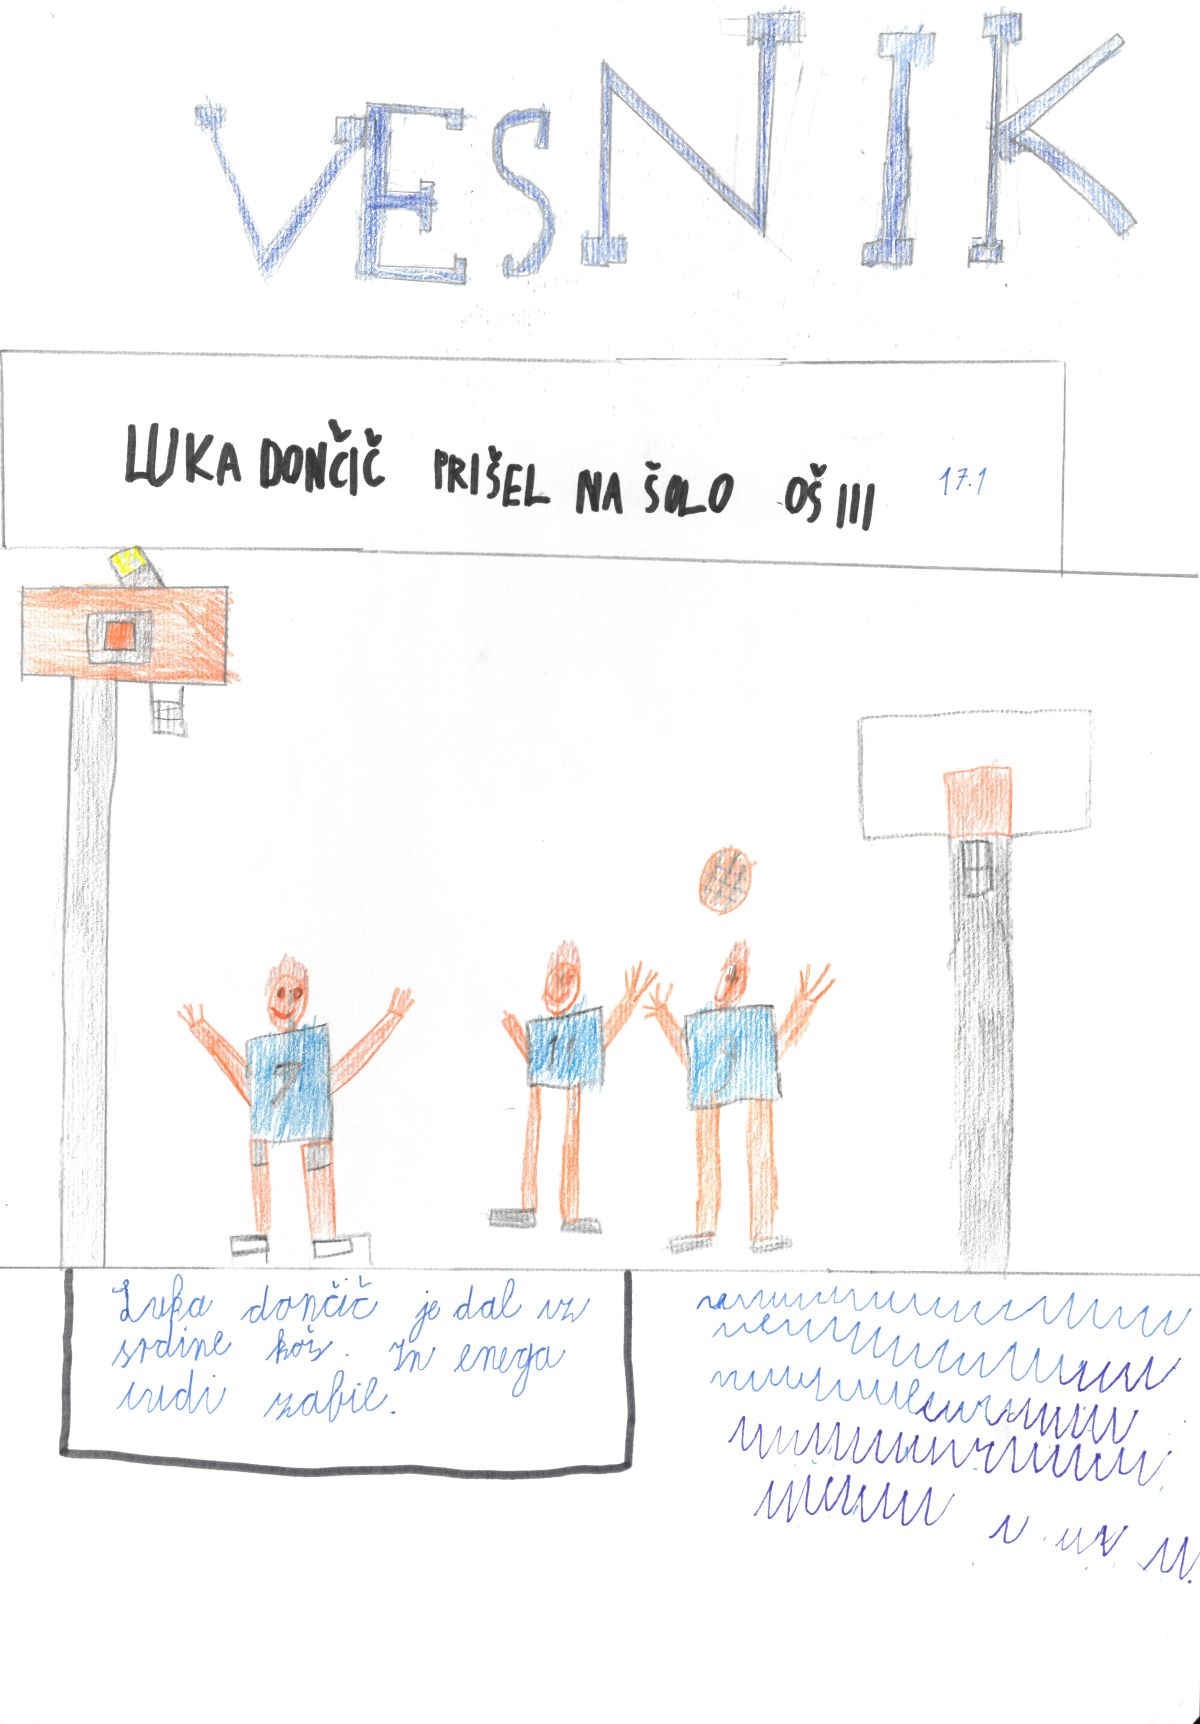 VESNIK
LUKA DONČIČ PRIŠEL NA ŠOLO OŠ III 17.1
Luka dončič je dal iz
srdine koš. In enega
tudi zabil.
7
11